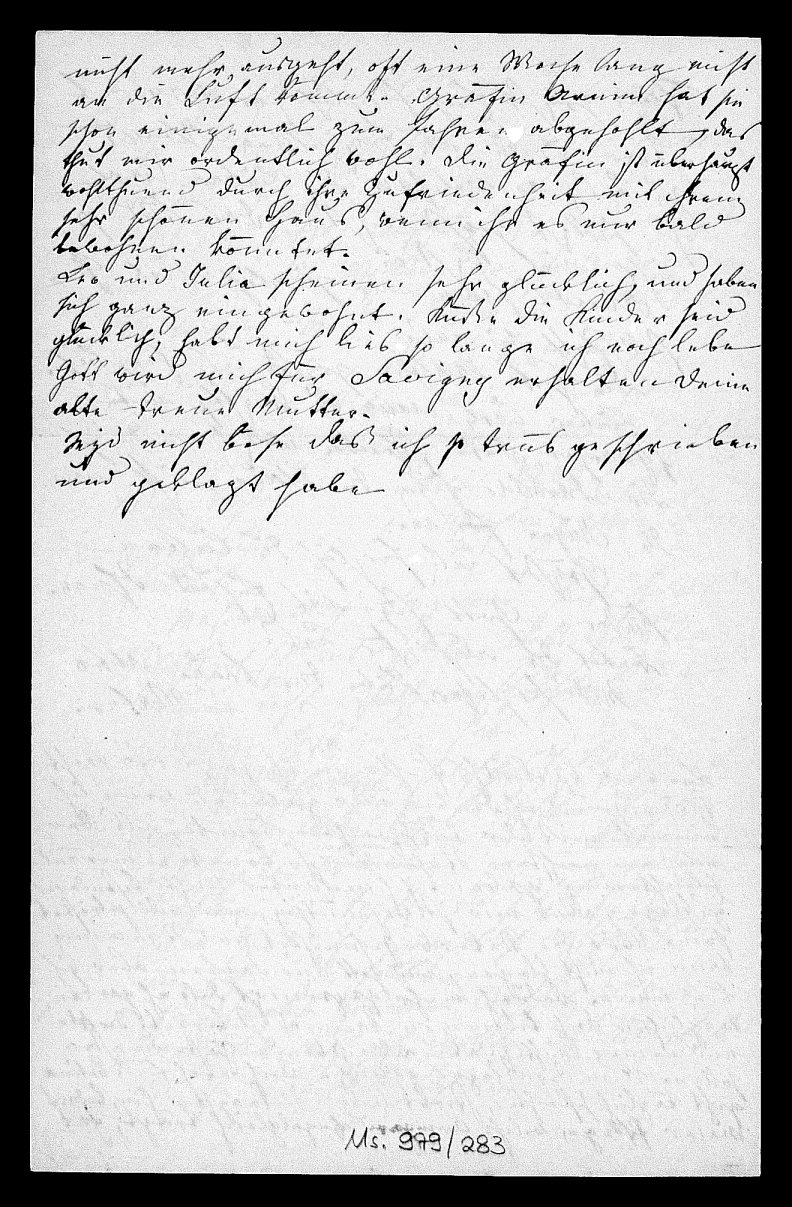 nicht mehr ausgeht, oft eine Woche lang nicht
an die Luft komme. Gräfin Arnim hat sie
schon einigemal zum Fahren abgehohlt, das
thut mir ordentlich wohl. die Gräfin ist überhaupt
wohlthuend durch ihre Zufriedenheit mit ihrem
sehr schönen Haus, wenn ihr es nur bald
bewohnen könntet.
Leo und Julia scheinen sehr glücklich, und haben
sich ganz eingewohnt. Küsse die Kinder seid
glücklich, habt mich lieb so lange ich noch lebe
Gott wird mich für Savigny erhalten deine
alte treue Mutter.
Seyd nicht böse das ich so trüb geschrieben
und geklagt habe
Ms. 979/283